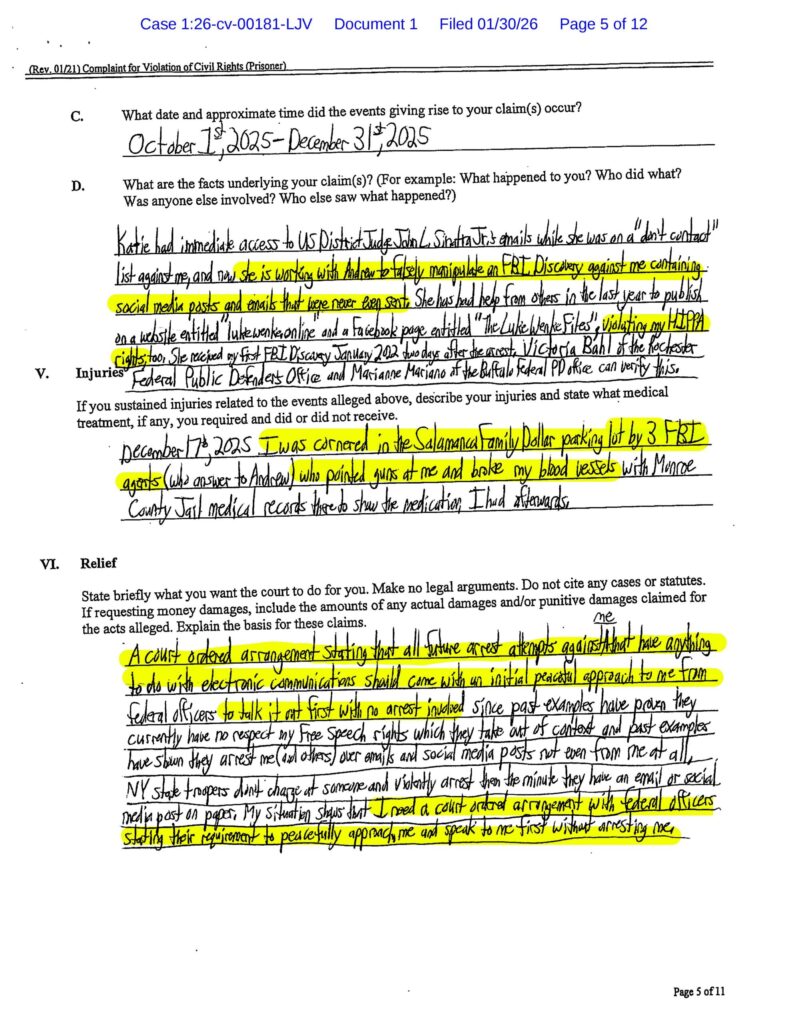 Case 1:26-cv-00181-LJV Document 1 Filed 01/30/26 Page 5 of 12
(Rev. 01/21) Complaint for Violation of Civil Rights (Prisoner)
C. What date and approximate time did the events giving rise to your claim(s) occur?
October 1st, 2025 - December 31st, 2025
D. What are the facts underlying your claim(s)? (For example: What happened to you? Who did what?
Was anyone else involved? Who else saw what happened?)
Katie had immediate access to US District Judge John L. Sinatra Jr.'s emails while she was on a "don't contact"
list against me, and now she is working with Andrew to falsely manipulate an FBI Discovery against me containing
social media posts and emails that were never even sent. She has had help from others in the last year to publish
on a website entitled "lukewenke.online" and a Facebook page entitled "The Luke Wenke Files", violating my HIPPA
rights, too. She received my first FBI Discovery January 2022 two days after the arrest. Victoria Bahl of the Rochester
Federal Public Defenders Office and Marianne Mariano of the Buffalo Federal PD office can verify this.
V. Injuries
If you sustained injuries related to the events alleged above, describe your injuries and state what medical
treatment, if any, you required and did or did not receive.
December 17th, 2025 I was cornered in the Salamanca Family Dollar parking lot by 3 FBI
agents (who answer to Andrew) who pointed guns at me and broke my blood vessels with Monroe
County Jail medical records there to show the medication I had afterwards.
VI. Relief
State briefly what you want the court to do for you. Make no legal arguments. Do not cite any cases or statutes.
If requesting money damages, include the amounts of any actual damages and/or punitive damages claimed for
the acts alleged. Explain the basis for these claims.
me
A court ordered arrangement stating that all future arrest attempts against that have anything
to do with electronic communications should come with an initial peaceful approach to me from
federal officers to talk it out first with no arrest involved since past examples have proven they
currently have no respect my Free Speech rights which they take out of context and past examples
have shown they arrest me (and others) over emails and social media posts not even from me at all.
NY state troopers don't charge at someone and violently arrest them the minute they have an email or social
media post on paper. My situation shows that I need a court ordered arrangement with federal officers
stating their requirement to peacefully approach me and speak to me first without arresting me.
Page 5 of 11